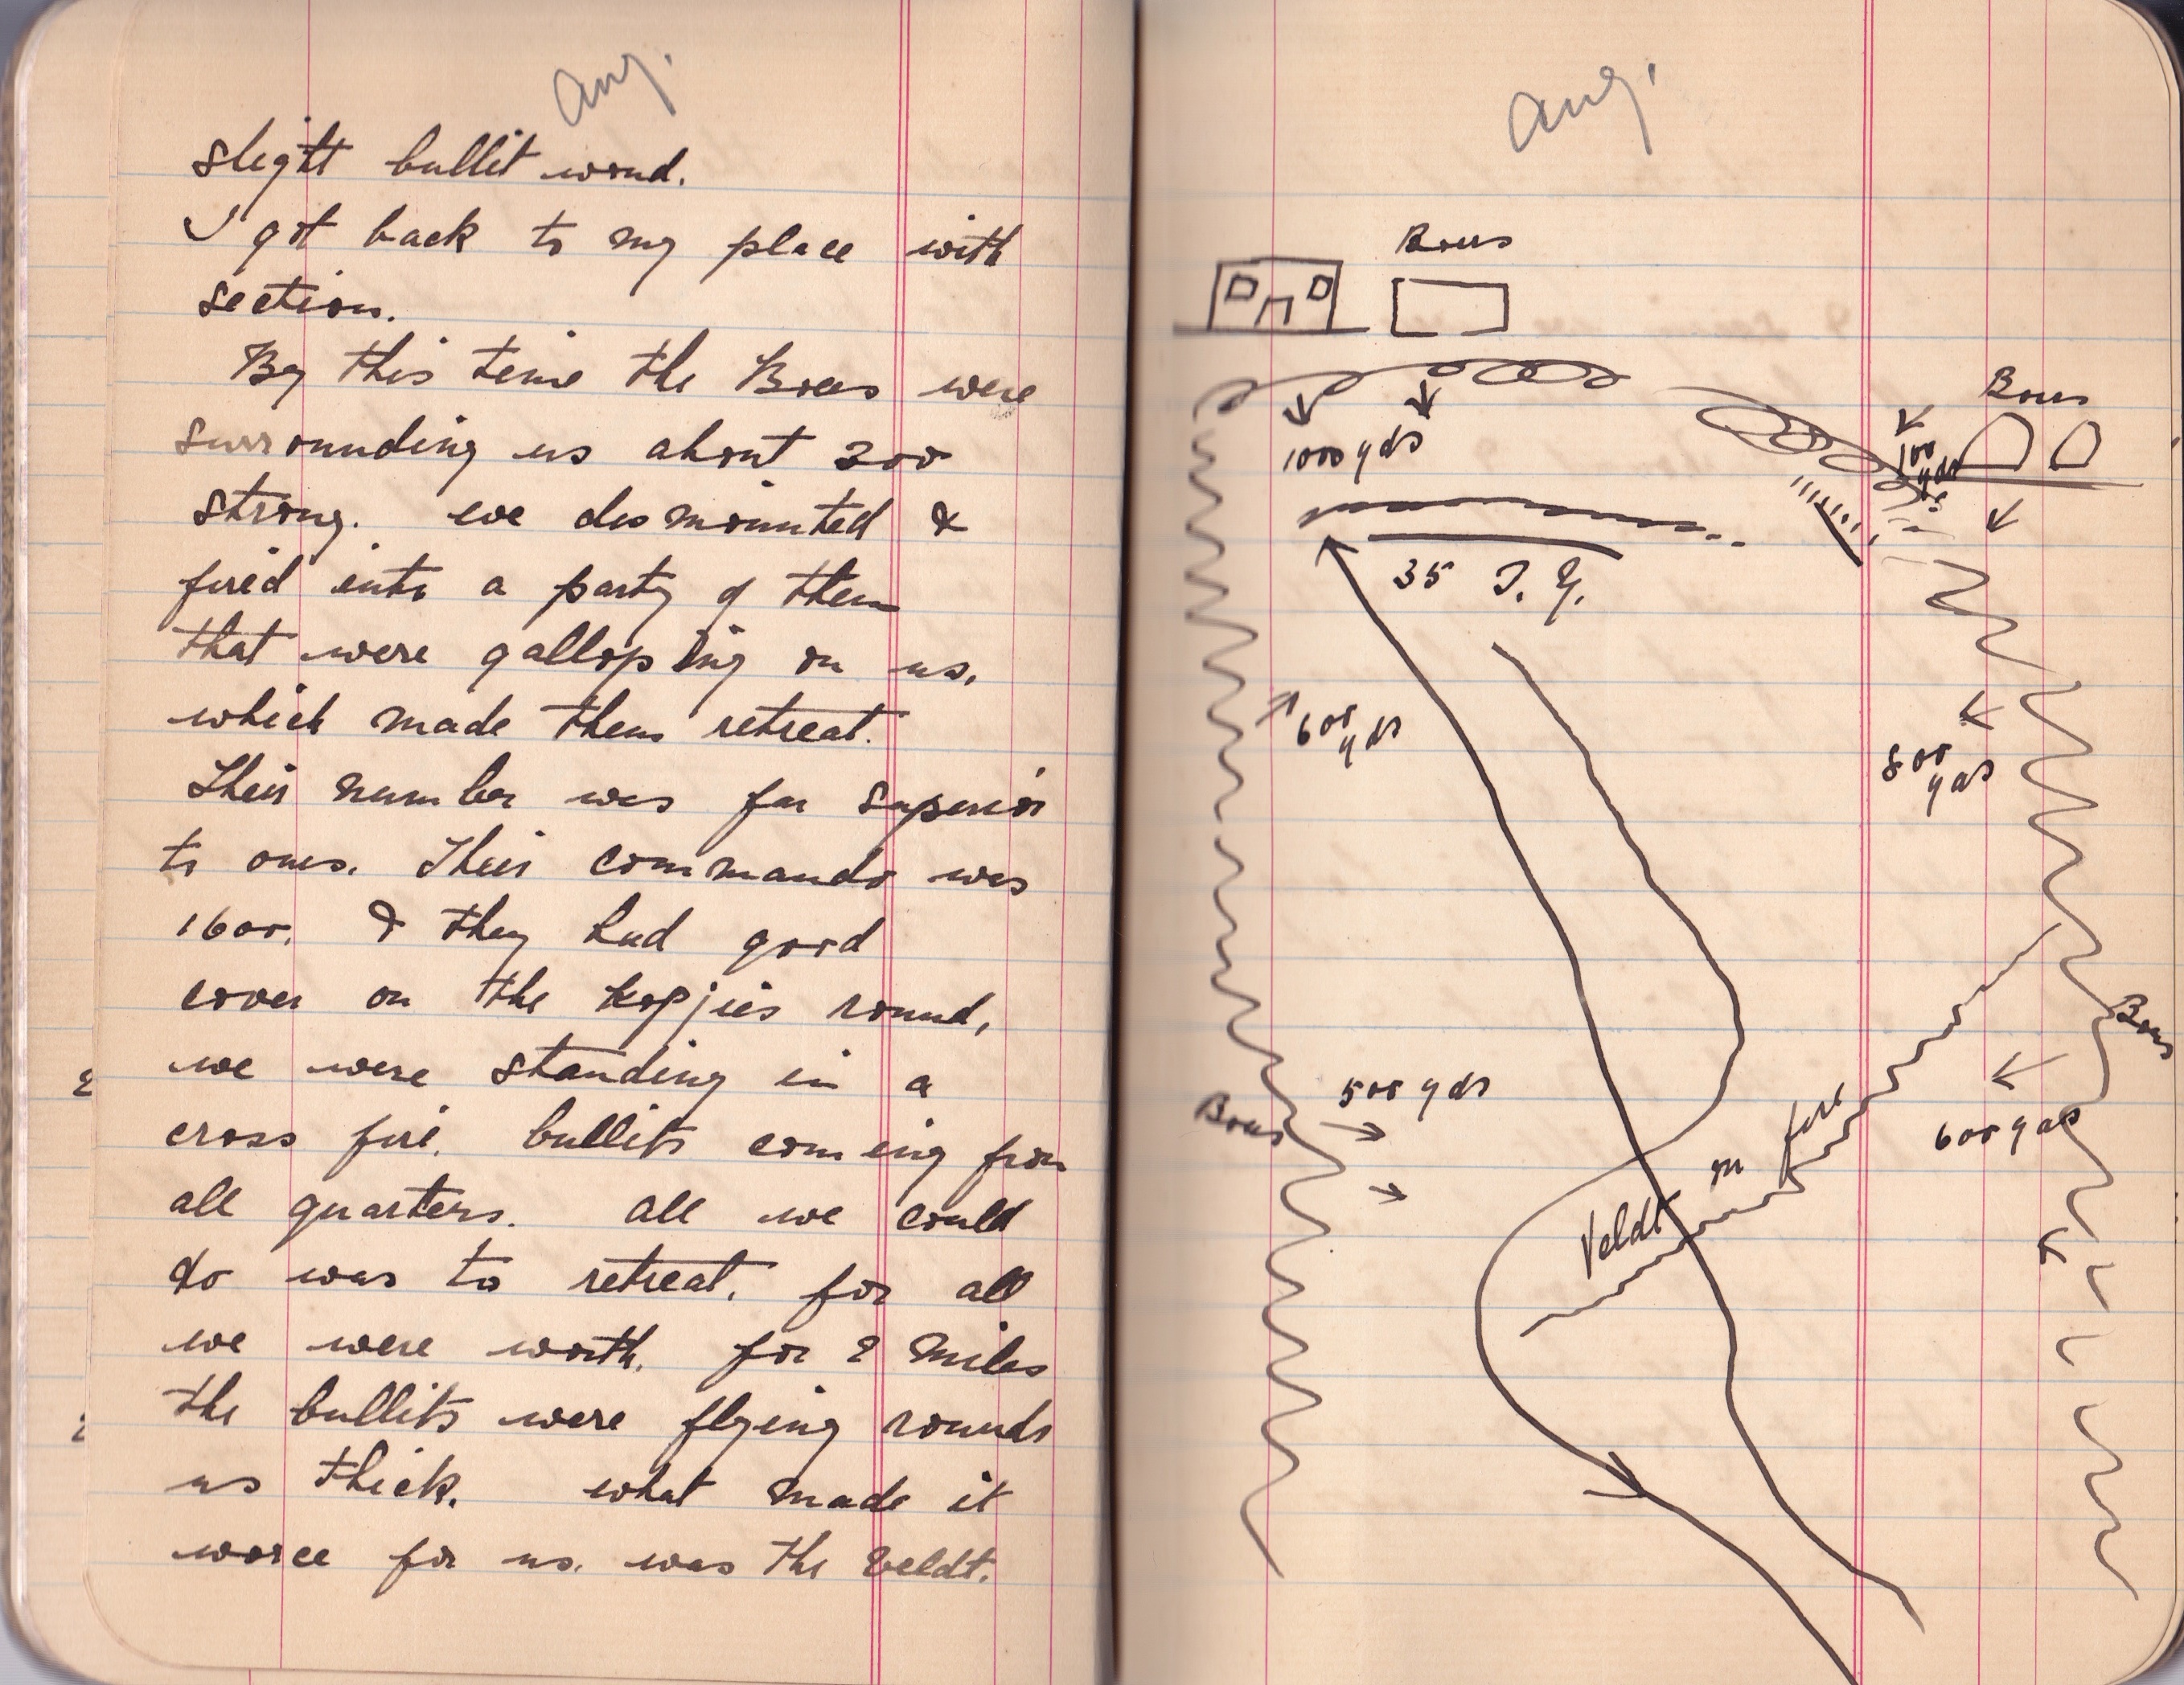 Aug.
slight bullit wound.
I got back to my place with
section.
By this time the Boers were
surrounding us about 300
strong. we dismounted &
fired into a party of them
that were galloping on us,
which made them retreat.
Their number was far superior
to ours. Their commando was
1600. & they had good
cover on the kopjies round,
we were standing in a
cross fire. bullits coming from
all quarters. all we could
do was to retreat. for all
we were worth. for 2 miles
the bullits were flying rounds
us thick. what made it
worce for us. was the veldt.
Aug.
Boers
Boers
1000 yds
100 yds
35 I. Y.
600 yds
800 yds
Boers
500 yds
Boers
600 yds
Veldt on fire